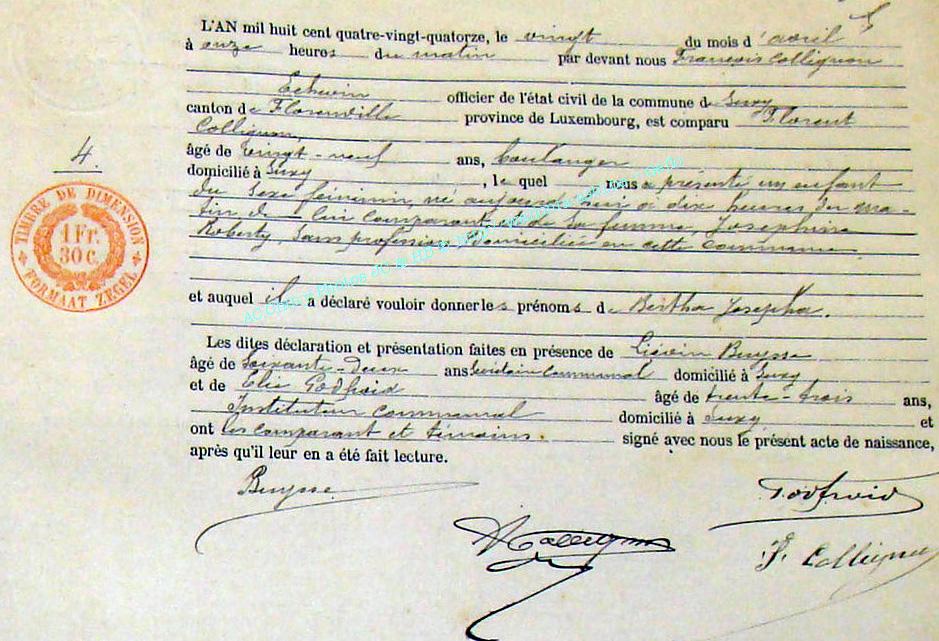 L'AN mil huit cent quatre-vingt-quatorze, le vingt du mois d'avril
à onze heures du matin par devant nous François Collignon
Echevin officier de l'état civil de la commune de Suxy
canton de Florenville province de Luxembourg, est comparu Florent
Collignon,
âgé de vingt-neuf ans, boulanger
domicilié à Suxy, lequel nous a présenté un enfant
du sexe féminin, né aujourd'hui à dix heures du ma-
tin de lui comparant et de sa femme, Josephine
Roberty, sans profession domiciliée en cette commune
et auquel il a déclaré vouloir donner les prénoms de Bertha Josepha.
Les dites déclaration et présentation faites en présence de Liévin Buysse
âgé de soixante-deux ans communal domicilié à Suxy
et de Elie Godfroid âgé de trente-trois ans,
Instituteur communal domicilié à Suxy et
ont les comparant et témoins. signé avec nous le présent acte de naissance,
après qu'il leur en a été fait lecture.
4.
TIMBRE DE DIMENSION
1 Fr.
30 C.
FORMAAT ZEGEL
Buysse
Godfroid
Collignon
F. Collignon